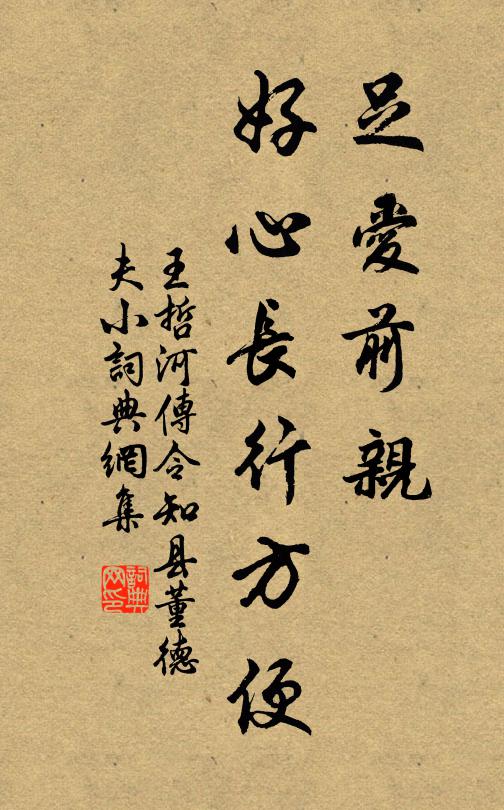 足愛前親
好心長行方便
王哲河傳令知县董德
夫小詞典網集
詞典
网印